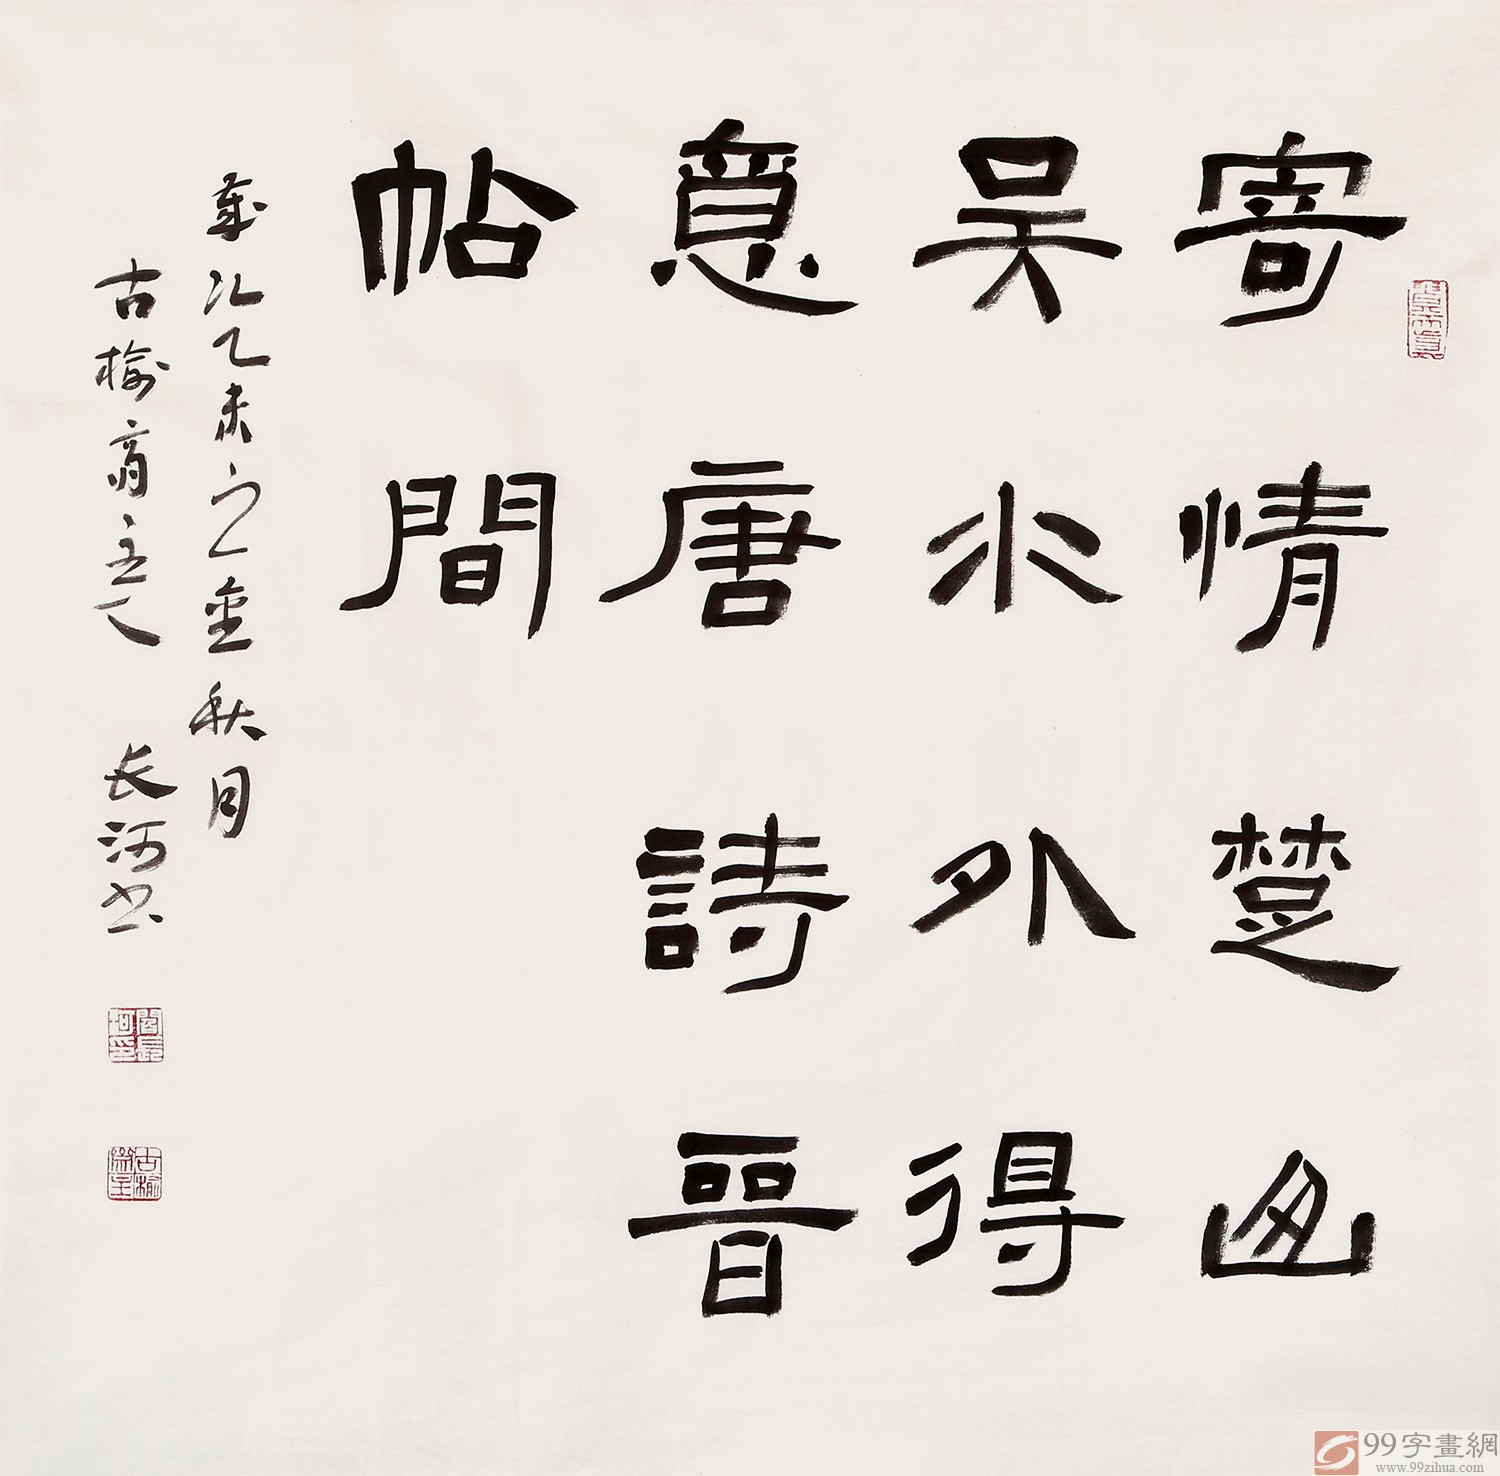 寄情楚山
吴水外得
意唐詩晋
帖間
歲次乙未之金秋月
古榆齋主人 长河书
古榆齋主
99字畫網
www.99zihua.com